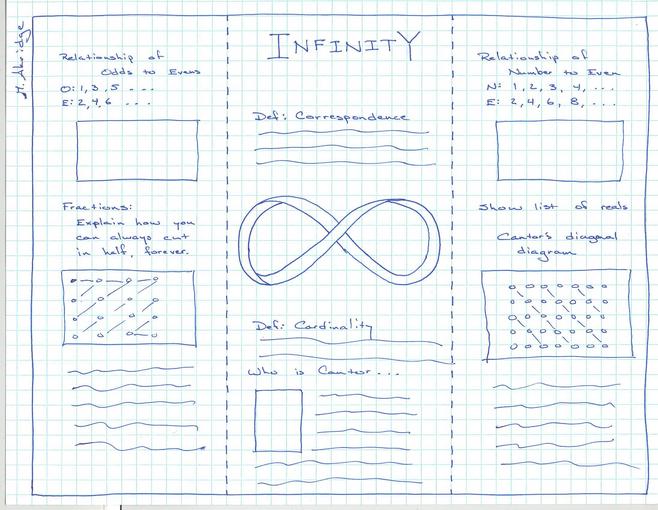 INFINITY
Relationship of
Odds to Evens
O: 1, 3, 5 ...
E: 2, 4, 6 ....
Fractions:
Explain how you
can always cut
in half, forever.
Def: Correspondence
Def: Cardinality
Who is Cantor...
Relationship of
Number to Even
N: 1, 2, 3, 4, ...
E: 2, 4, 6, 8, ...
Show list of reals
Cantor's diagonal
diagram